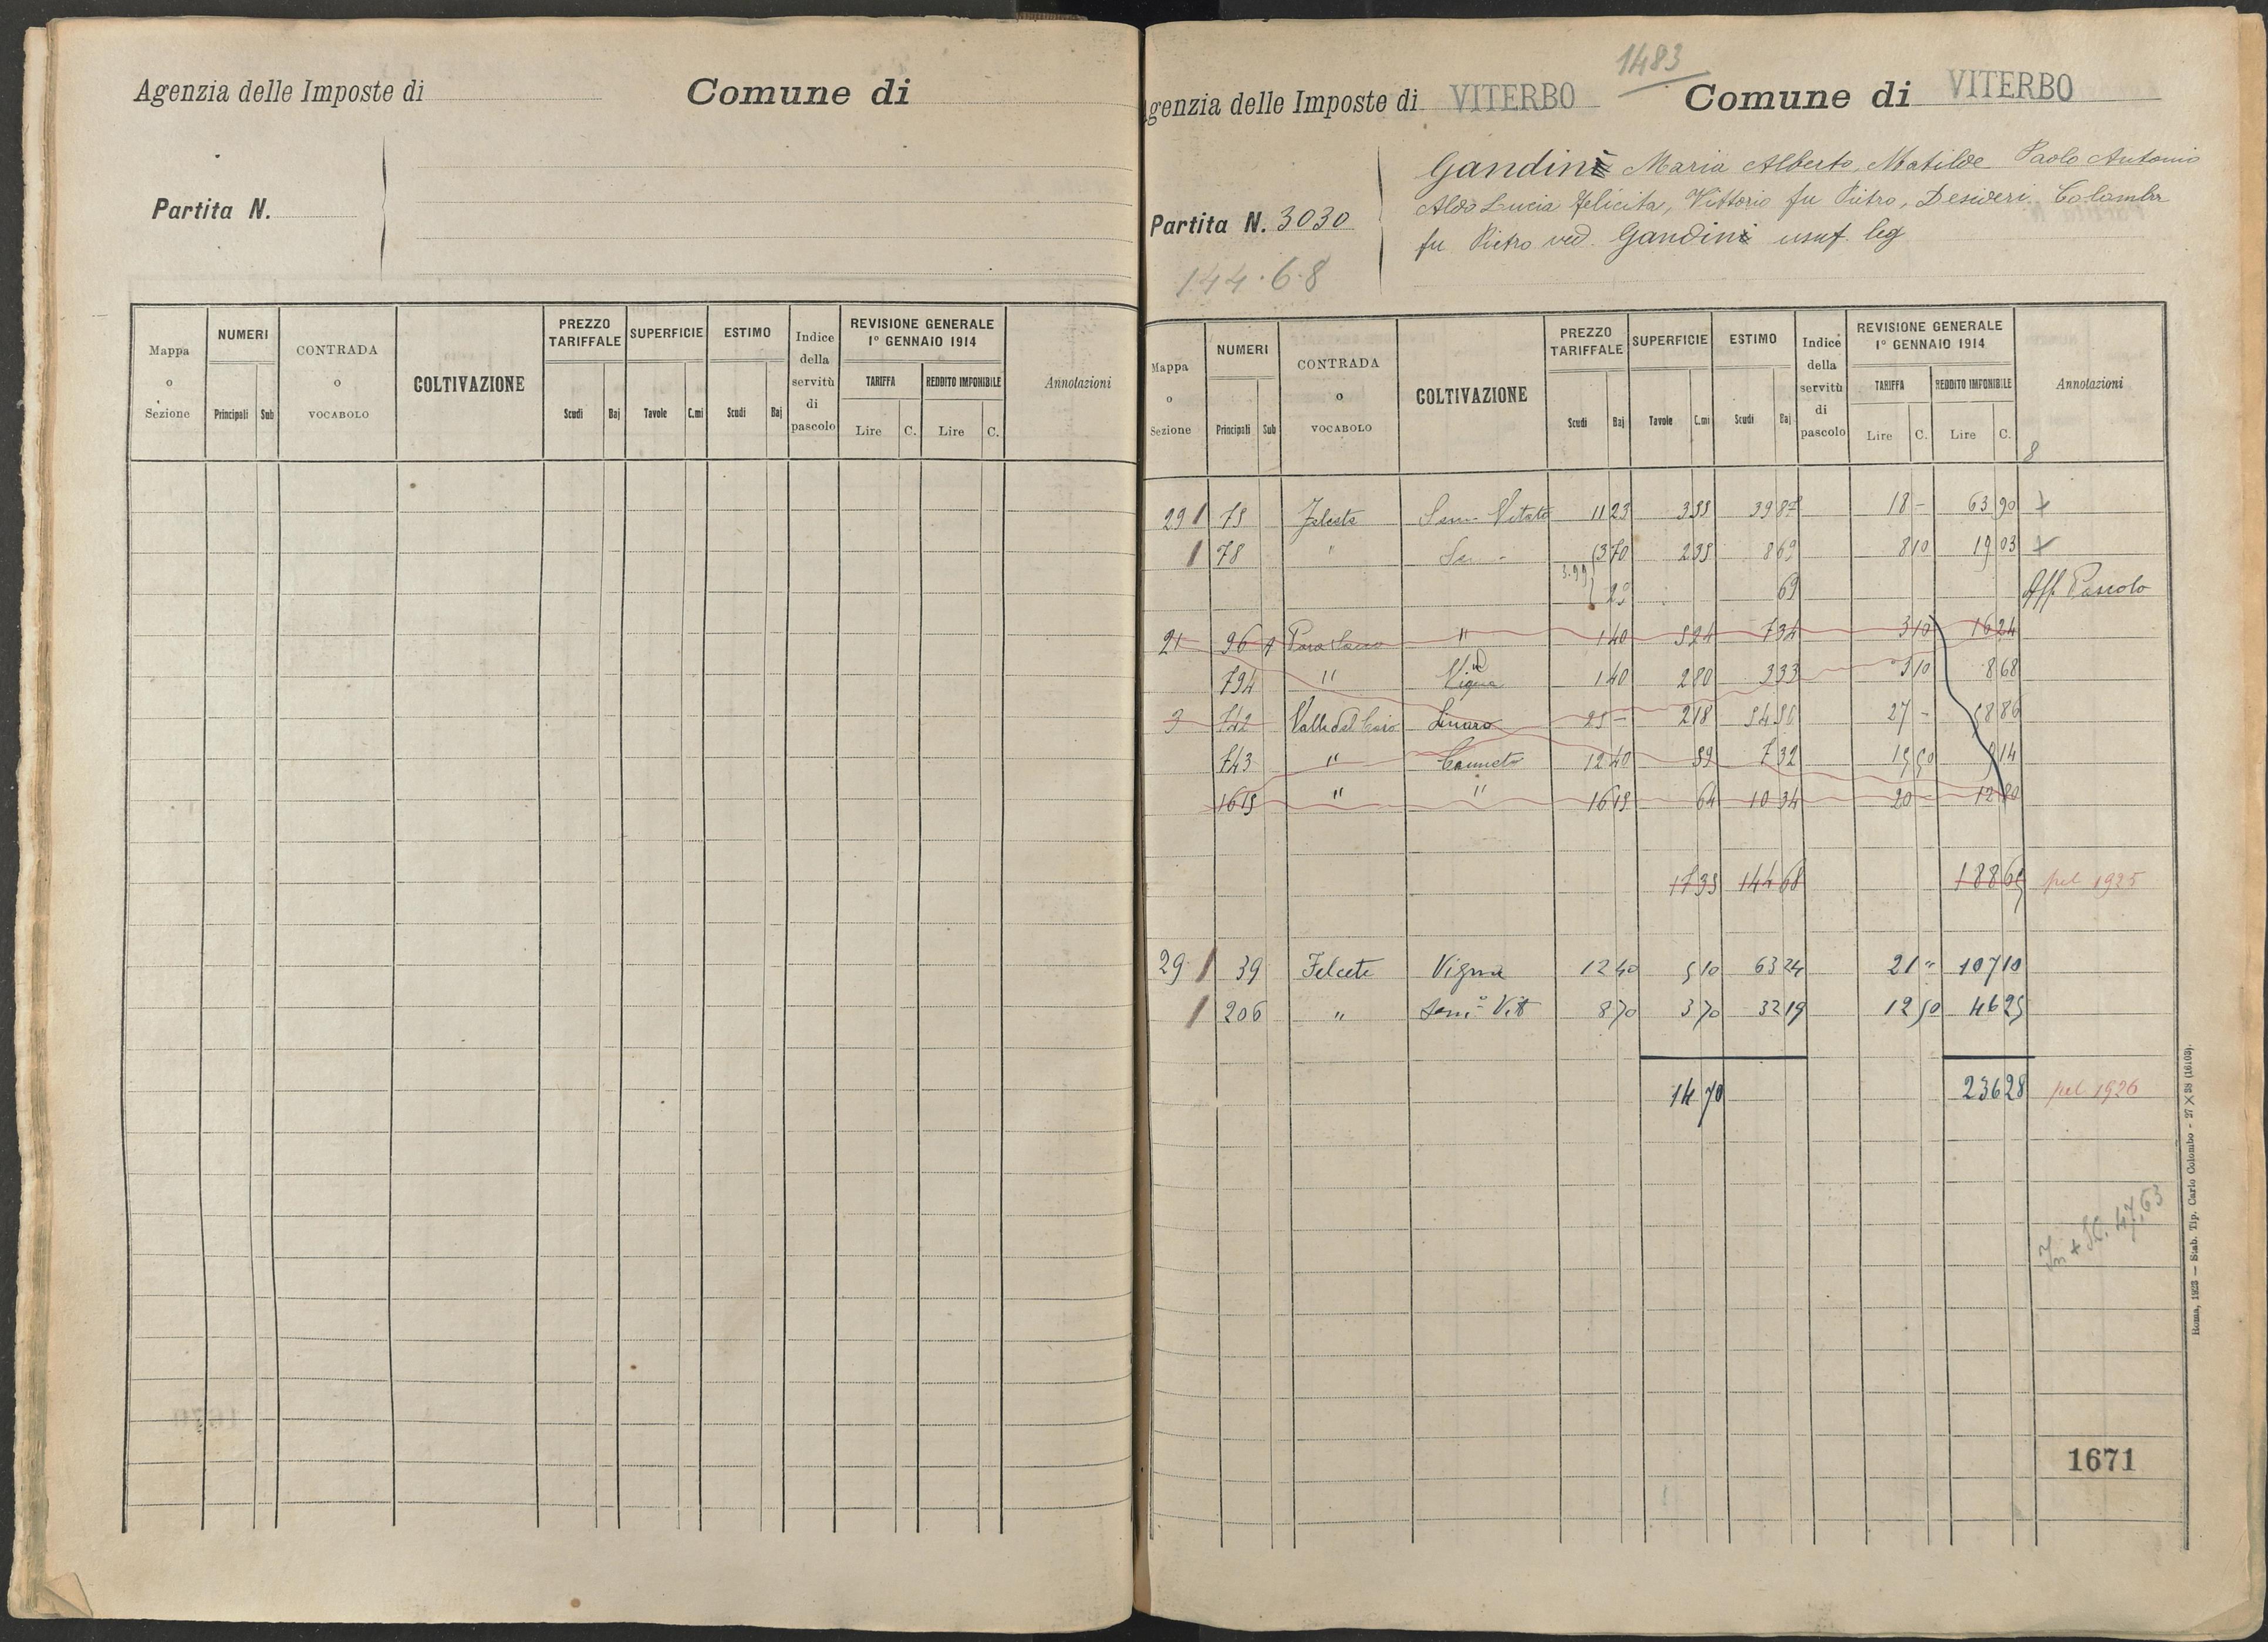 Agenzia delle Imposte di
Comune di
Partita N.
Mappa o Sezione
NUMERI
Principali Sub
CONTRADA o VOCABOLO
COLTIVAZIONE
PREZZO TARIFFALE
Scudi Baj
SUPERFICIE
Tavole C.mi
ESTIMO
Scudi Baj
Indice della servitù di pascolo
REVISIONE GENERALE
1º GENNAIO 1914
TARIFFA REDDITO IMPONIBILE
Lire C. Lire C.
Annotazioni
1483
genzia delle Imposte di VITERBO Comune di VITERBO
Gandini Maria Alberto, Matilde Paolo Antonio
Partita N. 3030
Aldo Lucia Felicita, Vittorio fu Pietro, Desideri Colomba
fu Pietro ved. Gandini usuf. leg
144.6.8
Mappa o Sezione
NUMERI
Principali Sub
CONTRADA o VOCABOLO
COLTIVAZIONE
PREZZO TARIFFALE
Scudi Baj
SUPERFICIE
Tavole C.mi
ESTIMO
Scudi Baj
Indice della servitù di pascolo
REVISIONE GENERALE
1º GENNAIO 1914
TARIFFA REDDITO IMPONIBILE
Lire C. Lire C.
Annotazioni
8
29 / 75 Felceta Sem. Vitato 11 23 3 55 39 87 18 - 63 90 +
/ 78 " 3 70 2 35 8 69 8 10 19 03 +
3.99 29 69 Aff. Pascolo
21 96 A " 1 40 5 24 7 34 3 10 16 24
794 " Vigna 1 40 2 80 3 33 3 10 8 68
3 742 Valle del Linaro 25 - 2 18 54 50 27 - 58 86
743 " Canneto 12 40 59 7 32 15 50 9 14
1615 " " 16 15 64 10 34 20 - 12 80
17 35 144 68 188 65 pel 1925
29 / 39 Felcete Vigna 12 40 5 10 63 24 21 " 107 10
/ 206 " Semº Vit 8 70 3 70 32 19 12 50 46 25
14 70 236 28 pel 1926
47,63
Roma, 1923 — Stab. Tip. Carlo Colombo - 27 X 38 (16103).
1671